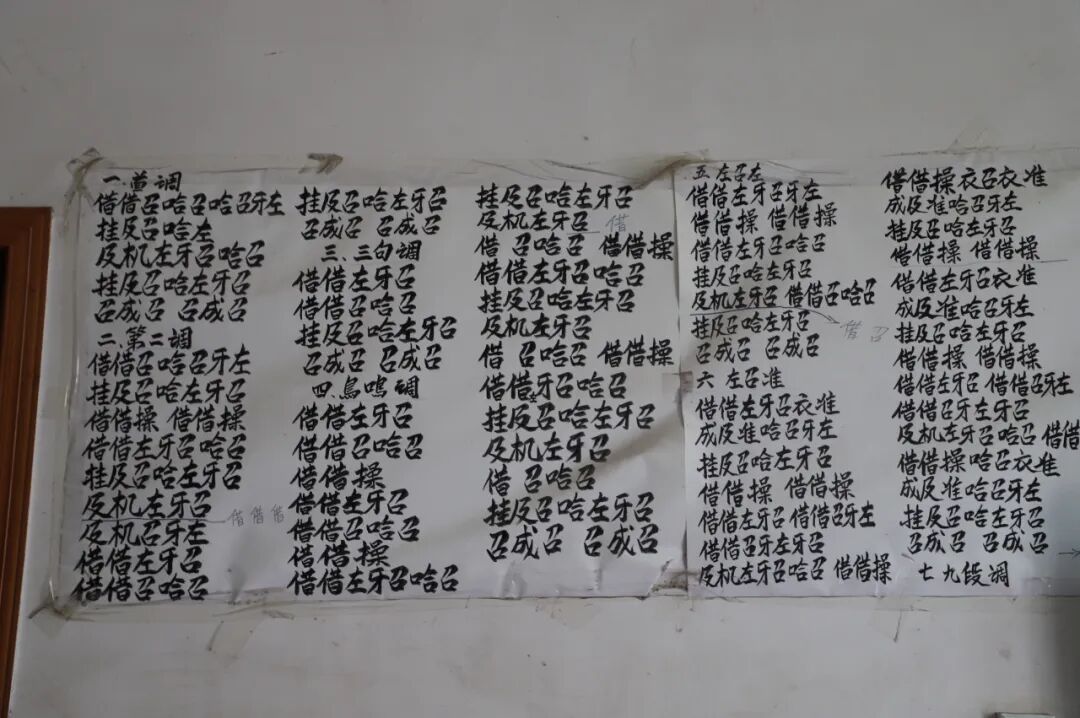 一.首调
借借召哈召哈召牙左
挂及召哈左
及机左牙召哈召
挂及召哈左牙召
召成召 召成召
二.第二调
借借召哈召牙左
挂及召哈左牙召
借借操 借借操
借借左牙召哈召
挂及召哈左牙召
及机左牙召
借借借
及机召牙左
借借左牙召
借借召哈召
挂及召哈左牙召
召成召 召成召
三.三句调
借借左牙召
借借召哈召
挂及召哈左牙召
召成召 召成召
四.鳥鸣调
借借左牙召
借借召哈召
借借操
借借左牙召
借借召哈召
借借操
借借左牙召哈召
挂及召哈左牙召
及机左牙召 借
借 召哈召 借借操
借借左牙召哈召
挂及召哈左牙召
及机左牙召
借 召哈召 借借操
借借牙召哈召
挂及召哈左牙召
及机左牙召
借 召哈召
挂及召哈左牙召
召成召 召成召
五 左召左
借借左牙召牙左
借借操 借借操
借借左牙召哈召
挂及召哈左牙召
及机左牙召 借借召哈召
挂及召哈左牙召 借召
召成召 召成召
六 左召准
借借左牙召衣准
成及准哈召牙左
挂及召哈左牙召
借借操 借借操
借借左牙召 借借召牙左
借借召牙左牙召
及机左牙召哈召 借借操
借借操衣召衣准
成及准哈召牙左
挂及召哈左牙召
借借操 借借操
借借左牙召衣准
成及准哈召牙左
挂及召哈左牙召
借借操 借借操
借借左牙召 借借召牙左
借借召牙左牙召
及机左牙召哈召 借借
借借操哈召衣准
成及准哈召牙左
挂及召哈左牙召
召成召 召成召
七 九段调